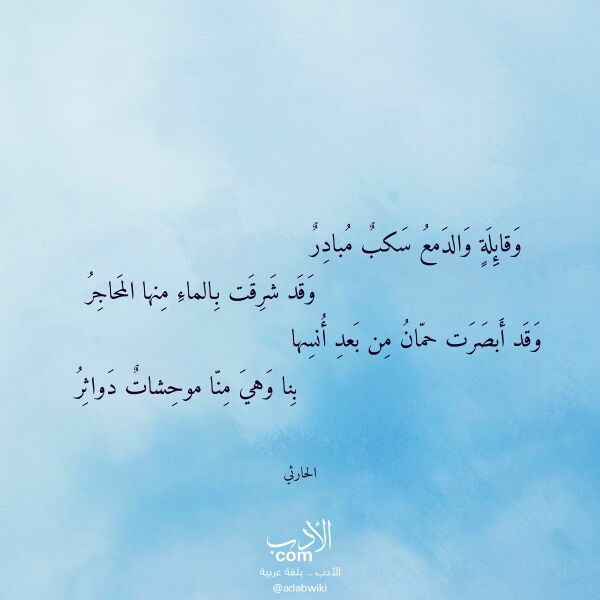 وَقائِلَةٍ وَالدَمعُ سَكبٌ مُبادِرٌ
وَقَد شَرِقَت بِالماءِ مِنها المَحاجِرُ
وَقَد أَبصَرَت حمّانُ مِن بَعدِ أُنسِها
بِنا وَهيَ مِنّا موحِشاتٌ دَواثِرُ
الحارثي
الأدب
com
الأدب .. بلغة عربية
@adabwiki